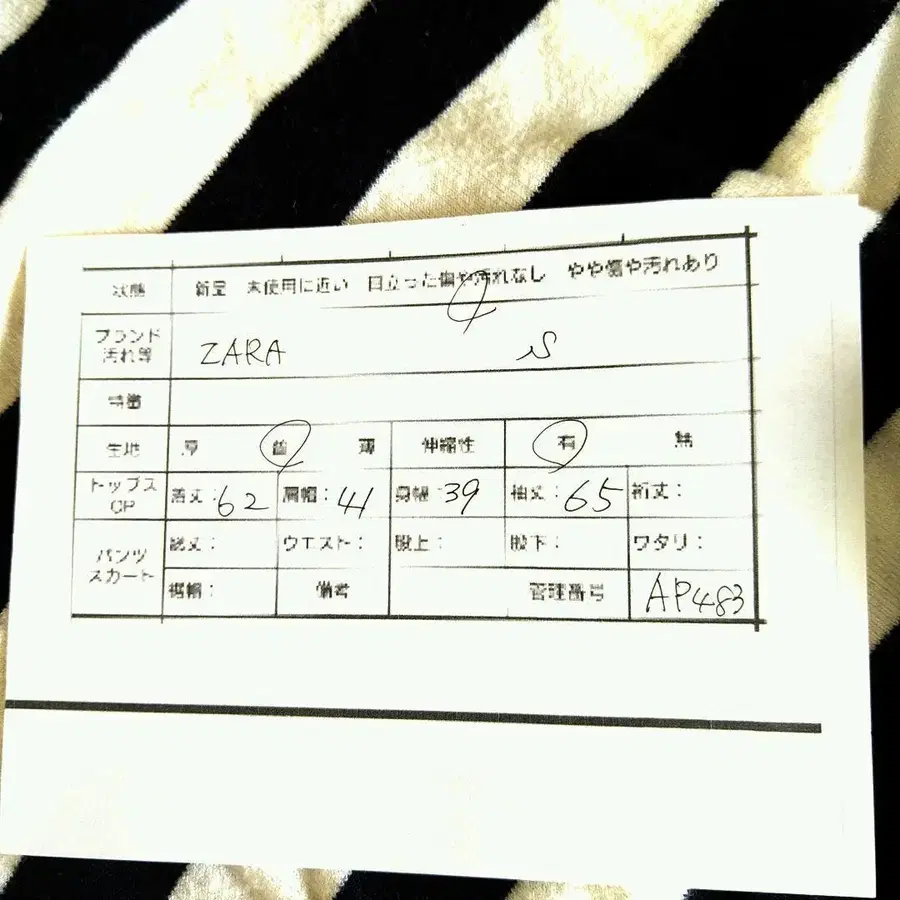 状態 新品 未使用に近い 目立った傷や汚れなし やや傷や汚れあり
ブランド
汚れ等 ZARA S
特徴
生地 厚 普 薄 伸縮性 有 無
トップス
OP 着丈:62 肩幅:41 身幅:39 袖丈:65 裄丈:
パンツ
スカート 総丈: ウエスト: 股上: 股下: ワタリ:
裾幅: 備考 管理番号 AP483